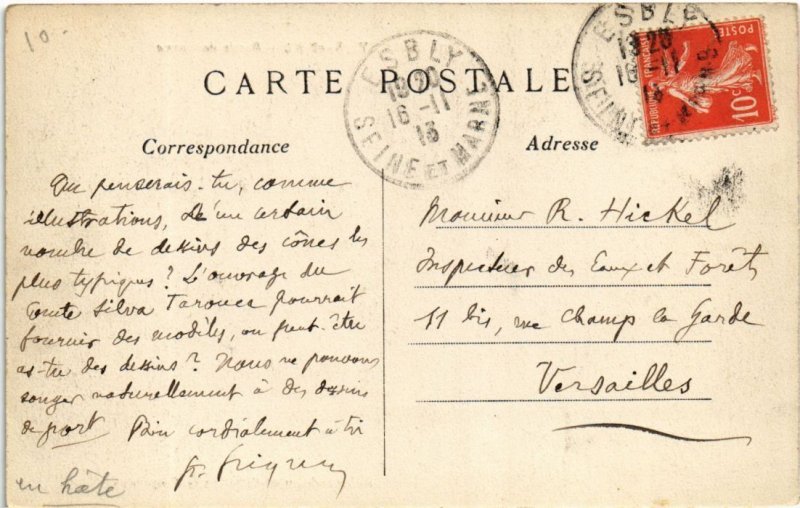 10.
CARTE POSTALE
ESBLY
19 20
16 -11
13
SEINE ET MARNE
ESBLY
19 20
16 -11
13
SEINE ET MARNE
POSTES
10c
Correspondance
Adresse
Que penserais-tu, comme
illustrations, d'un certain
nombre de dessins des cônes les
plus typiques ? L'ouvrage du
Comte Silva Tarouca pourrait
fournir des modèles, ou peut-être
as-tu des dessins ? Nous ne pouvons
songer naturellement à des dessins
de port. Bien cordialement à toi
en hâte
Monsieur R. Hickel
Inspecteur des Eaux et Forêts
11 bis, rue Champ la Garde
Versailles